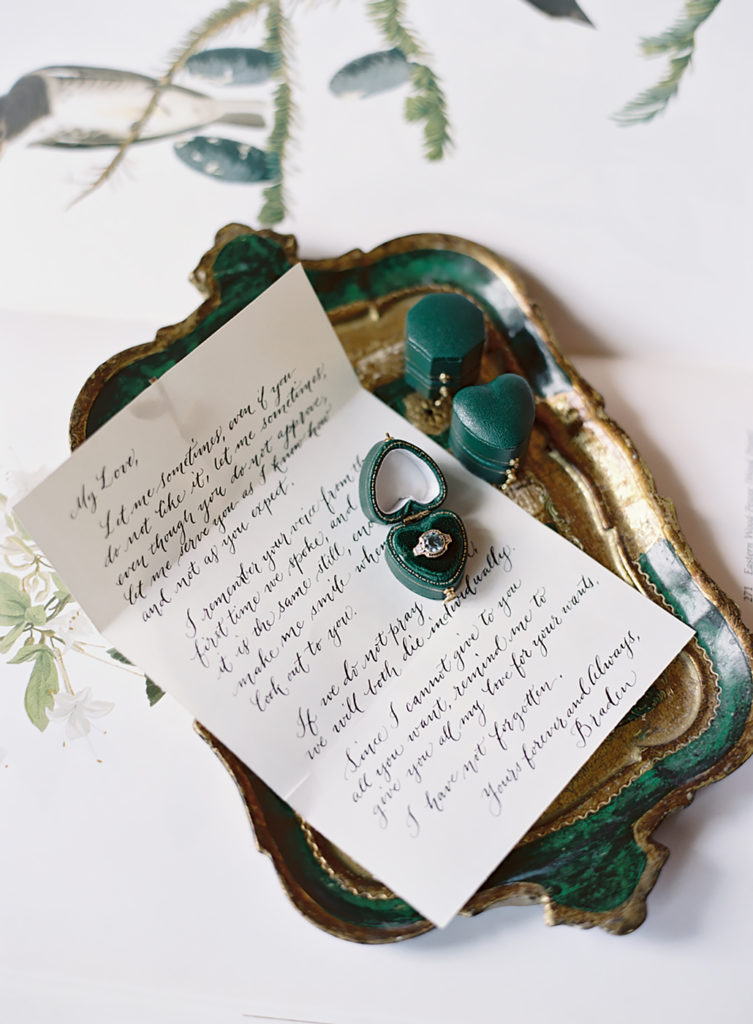 My Love,
Let me sometimes, even if you
do not like it, let me sometimes,
even though you do not approve,
let me serve you as I know how
and not as you expect.
I remember your voice from the
first time we spoke, and
it is the same still,
make me smile when
look out to you.
If we do not pray
we will both die individually.
Since I cannot give to you
all you want, remind me to
give you all my love for your wants,
I have not forgotten.
Yours forever and Always,
Braden